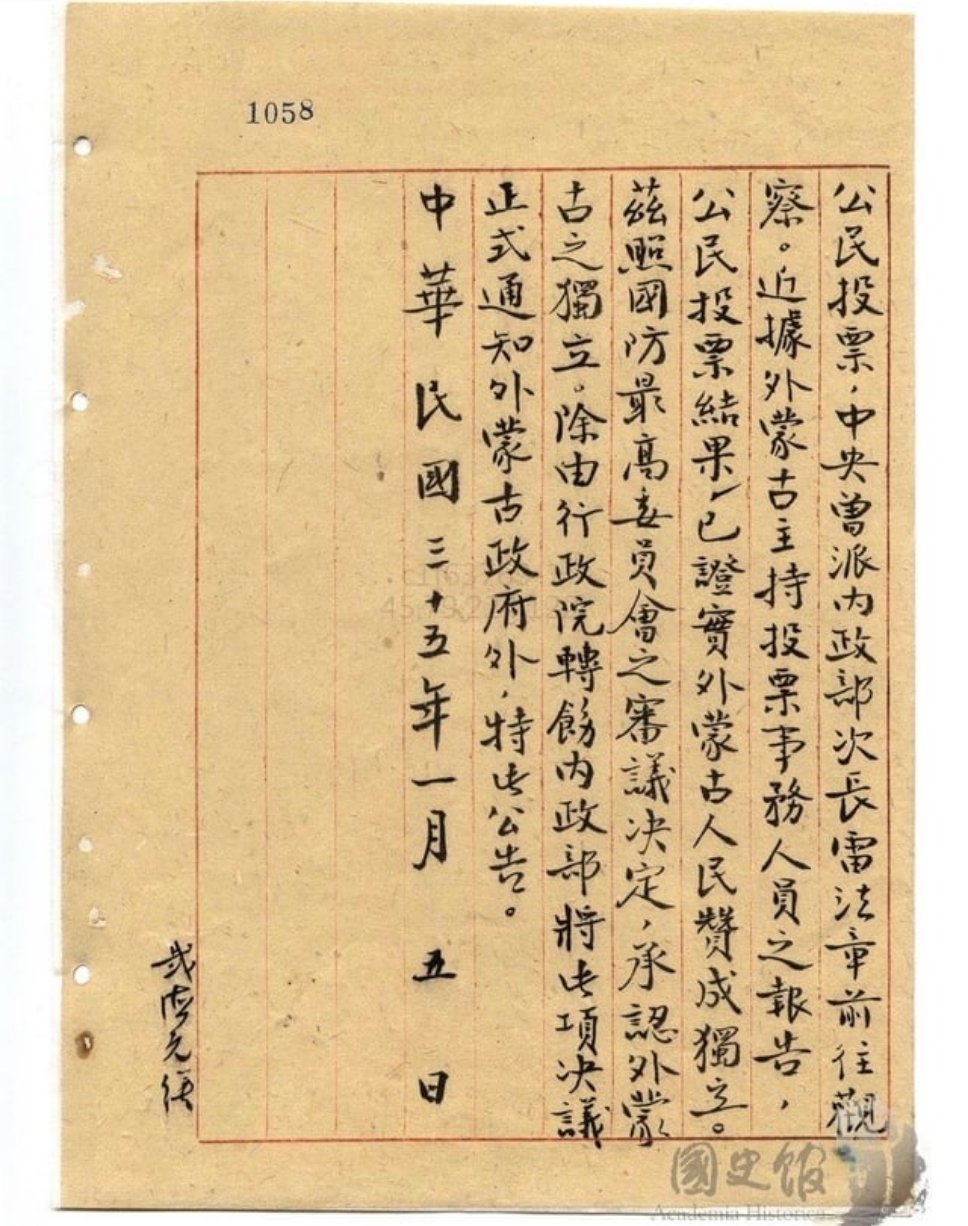 1058
公民投票，中央曾派內政部次長雷法章前往觀
察。近據外蒙古主持投票事務人員之報告，
公民投票結果，已證實外蒙古人民贊成獨立。
茲照國防最高委員會之審議決定，承認外蒙
古之獨立。除由行政院轉飭內政部將此項決議
正式通知外蒙古政府外，特此公告。
中華民國三十五年一月五日
國史館
Academia Historica